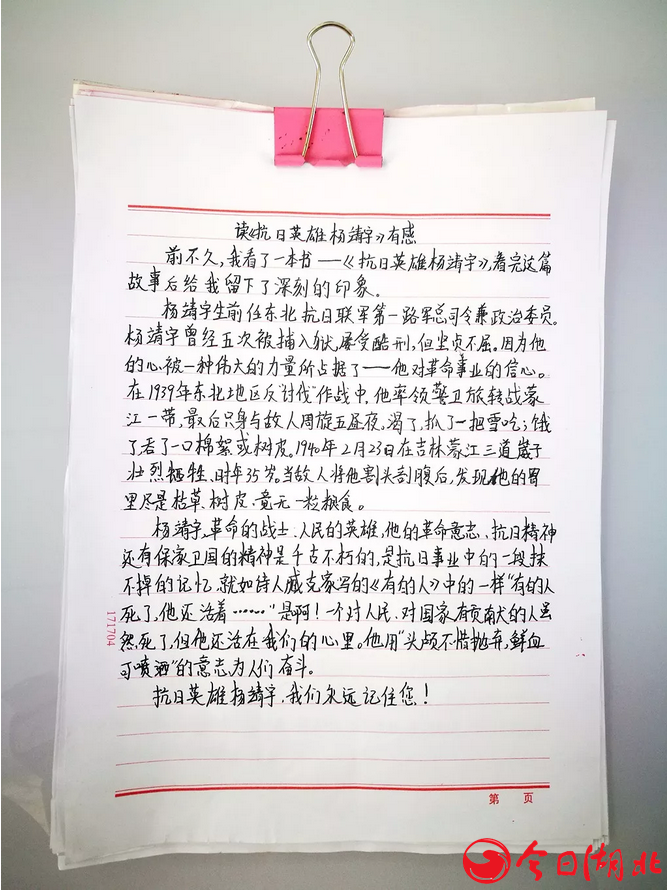 读《抗日英雄杨靖宇》有感
前不久,我看了一本书——《抗日英雄杨靖宇》,看完这篇
故事后给我留下了深刻的印象。
杨靖宇生前任东北抗日联军第一路军总司令兼政治委员。
杨靖宇曾经五次被捕入狱,屡受酷刑,但坚贞不屈。因为他
的心被一种伟大的力量所占据了——他对革命事业的信心。
在1939年东北地区反“讨伐”作战中,他率领警卫旅转战蒙
江一带,最后只身与敌人周旋五昼夜。渴了,抓了一把雪吃;饿
了吞了一口棉絮或树皮。1940年2月23日在吉林蒙江三道崴子
壮烈牺牲、时年35岁。当敌人将他割头剖腹后,发现他的胃
里尽是枯草、树皮、竟无一粒粮食。
杨靖宇,革命的战士、人民的英雄,他的革命意志、抗日精神
还有保家卫国的精神是千古不朽的,是抗日事业中的一段抹
不掉的记忆,就如诗人臧克家写的《有的人》中的一样“有的人
死了,他还活着……”是啊!一个对人民、对国家有贡献的人虽
然死了,但他还活在我们的心里。他用“头颅不惜抛弃,鲜血
可喷洒”的意志为人们奋斗。
抗日英雄杨靖宇,我们永远记住您!
171704
第 页
今日湖北